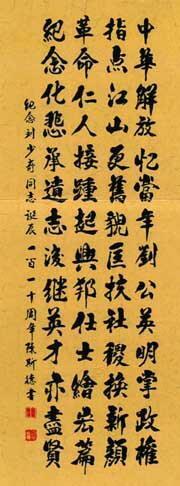 中華解放憶當年劉公英明掌政權
指点江山更舊貌匡扶社稷換新顏
革命仁人接踵起興邦仕士繪宏篇
紀念化悲承遺志後继英才亦盡賢
紀念刘少奇同志诞辰一百一十周年陳斯德書